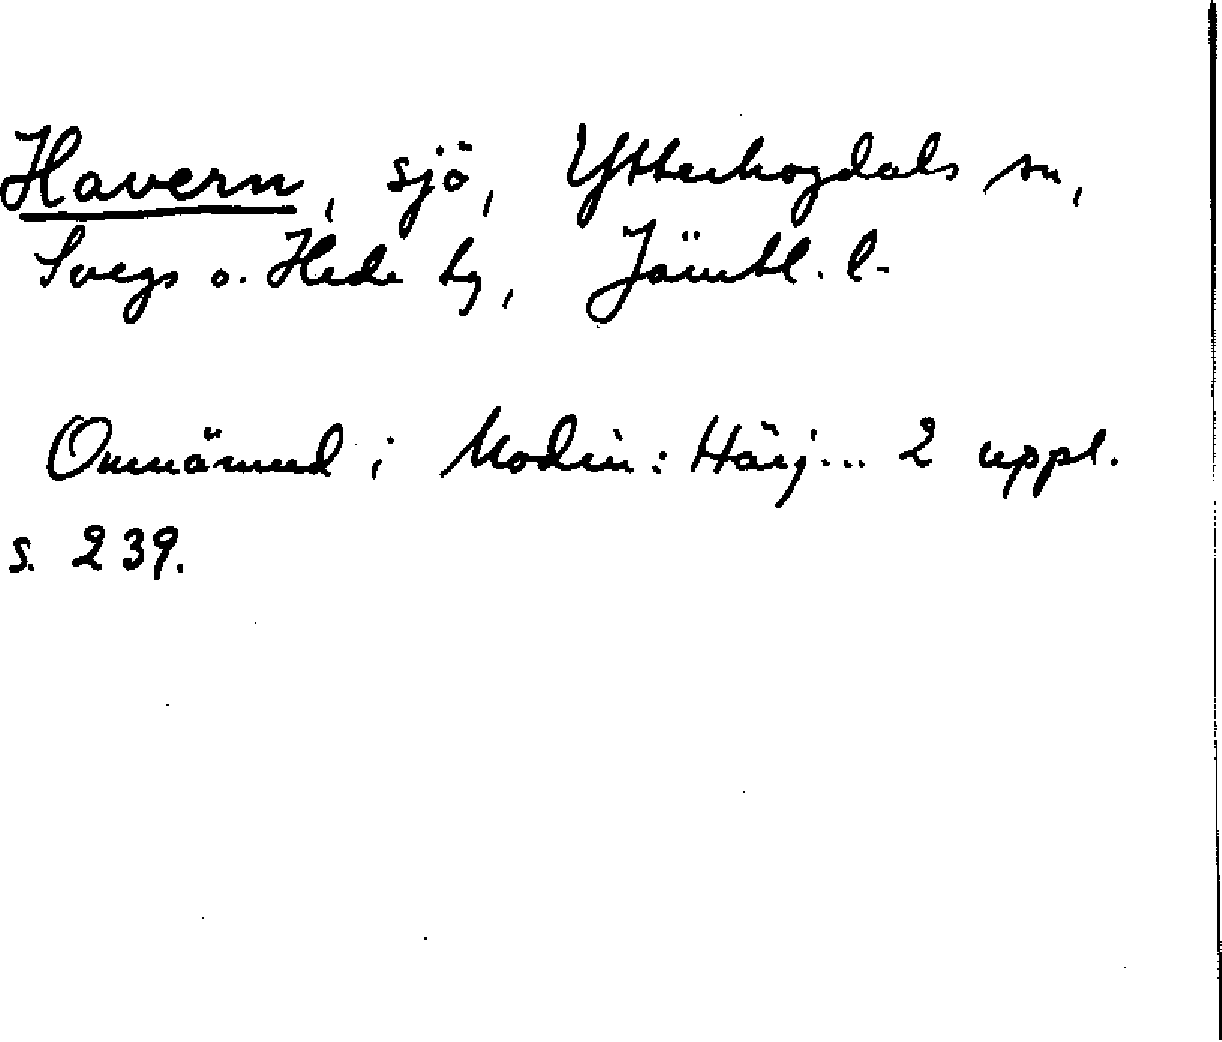 Havern, sjö, Ytterhogdals sn,
Svegs o. Hede tg, Jämtl. l.
Omnämnd i Modin: Härj... 2 uppl.
s. 239.